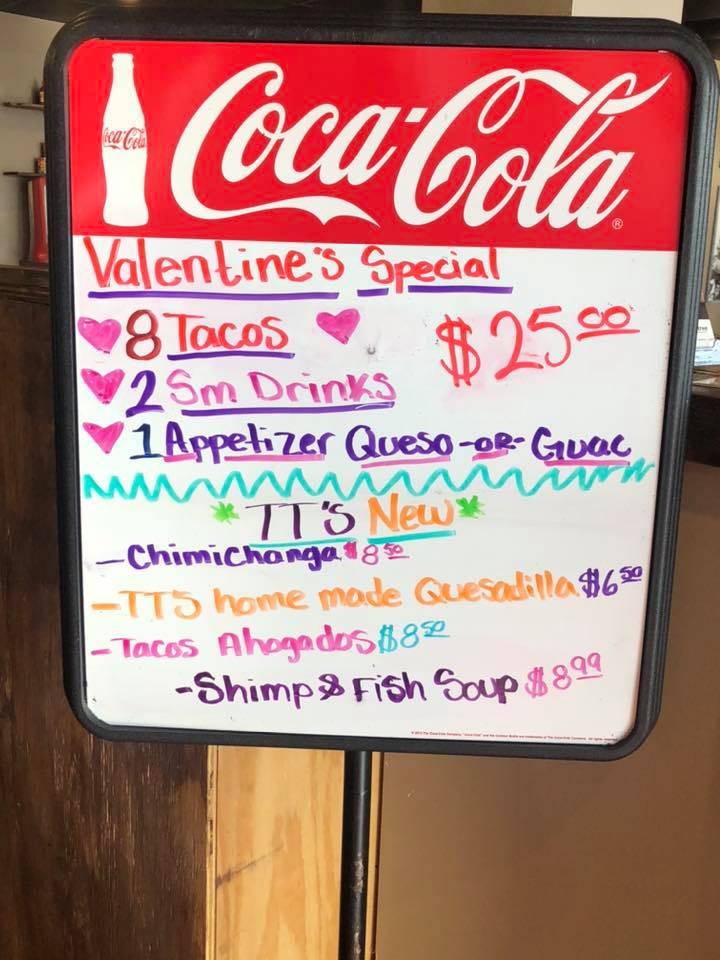 Coca-Cola
Coca-Cola®
Valentine's Special
8 Tacos
$25.00
2 Sm Drinks
1 Appetizer Queso -OR- Guac
*TT'S New*
-Chimichanga $8.50
-TTS home made Quesadilla $6.50
-Tacos Ahogados $8.50
-Shimp & Fish Soup $8.99